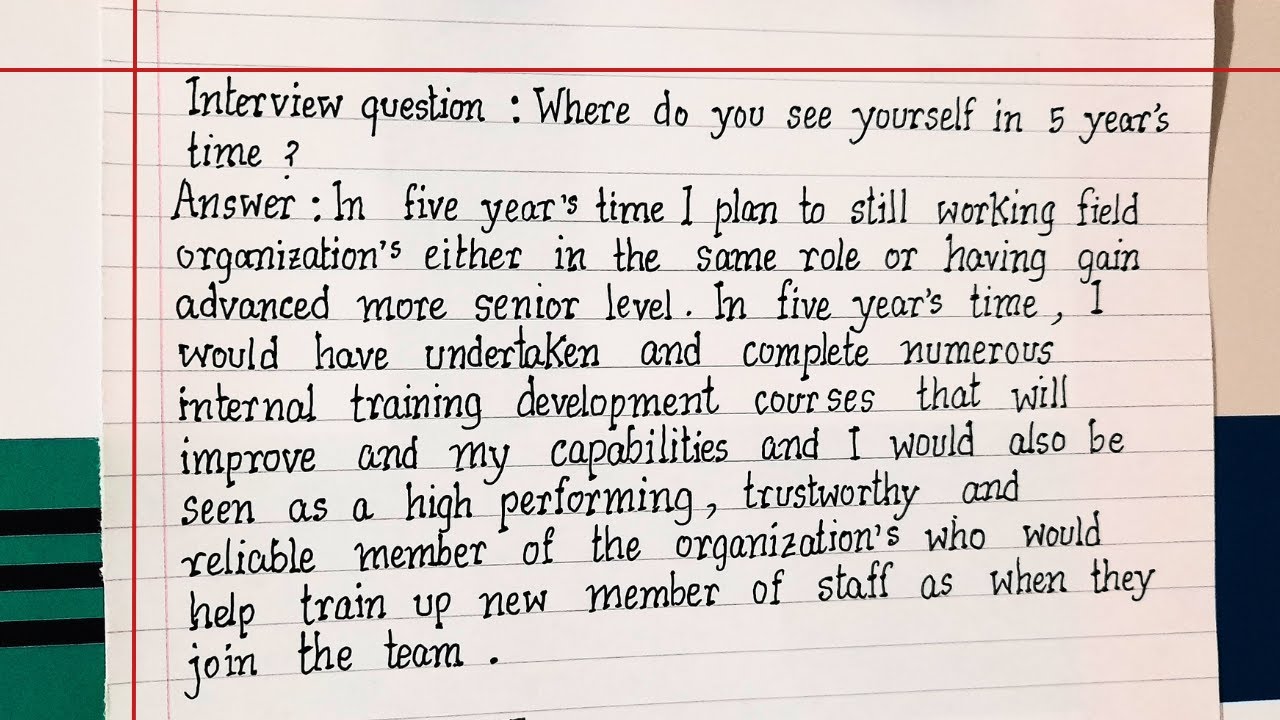 Interview question : Where do you see yourself in 5 year's
time ?
Answer : In five year's time I plan to still working field
organization's either in the same role or having gain
advanced more senior level. In five year's time, I
would have undertaken and complete numerous
internal training development courses that will
improve and my capabilities and I would also be
seen as a high performing, trustworthy and
reliable member of the organization's who would
help train up new member of staff as when they
join the team.